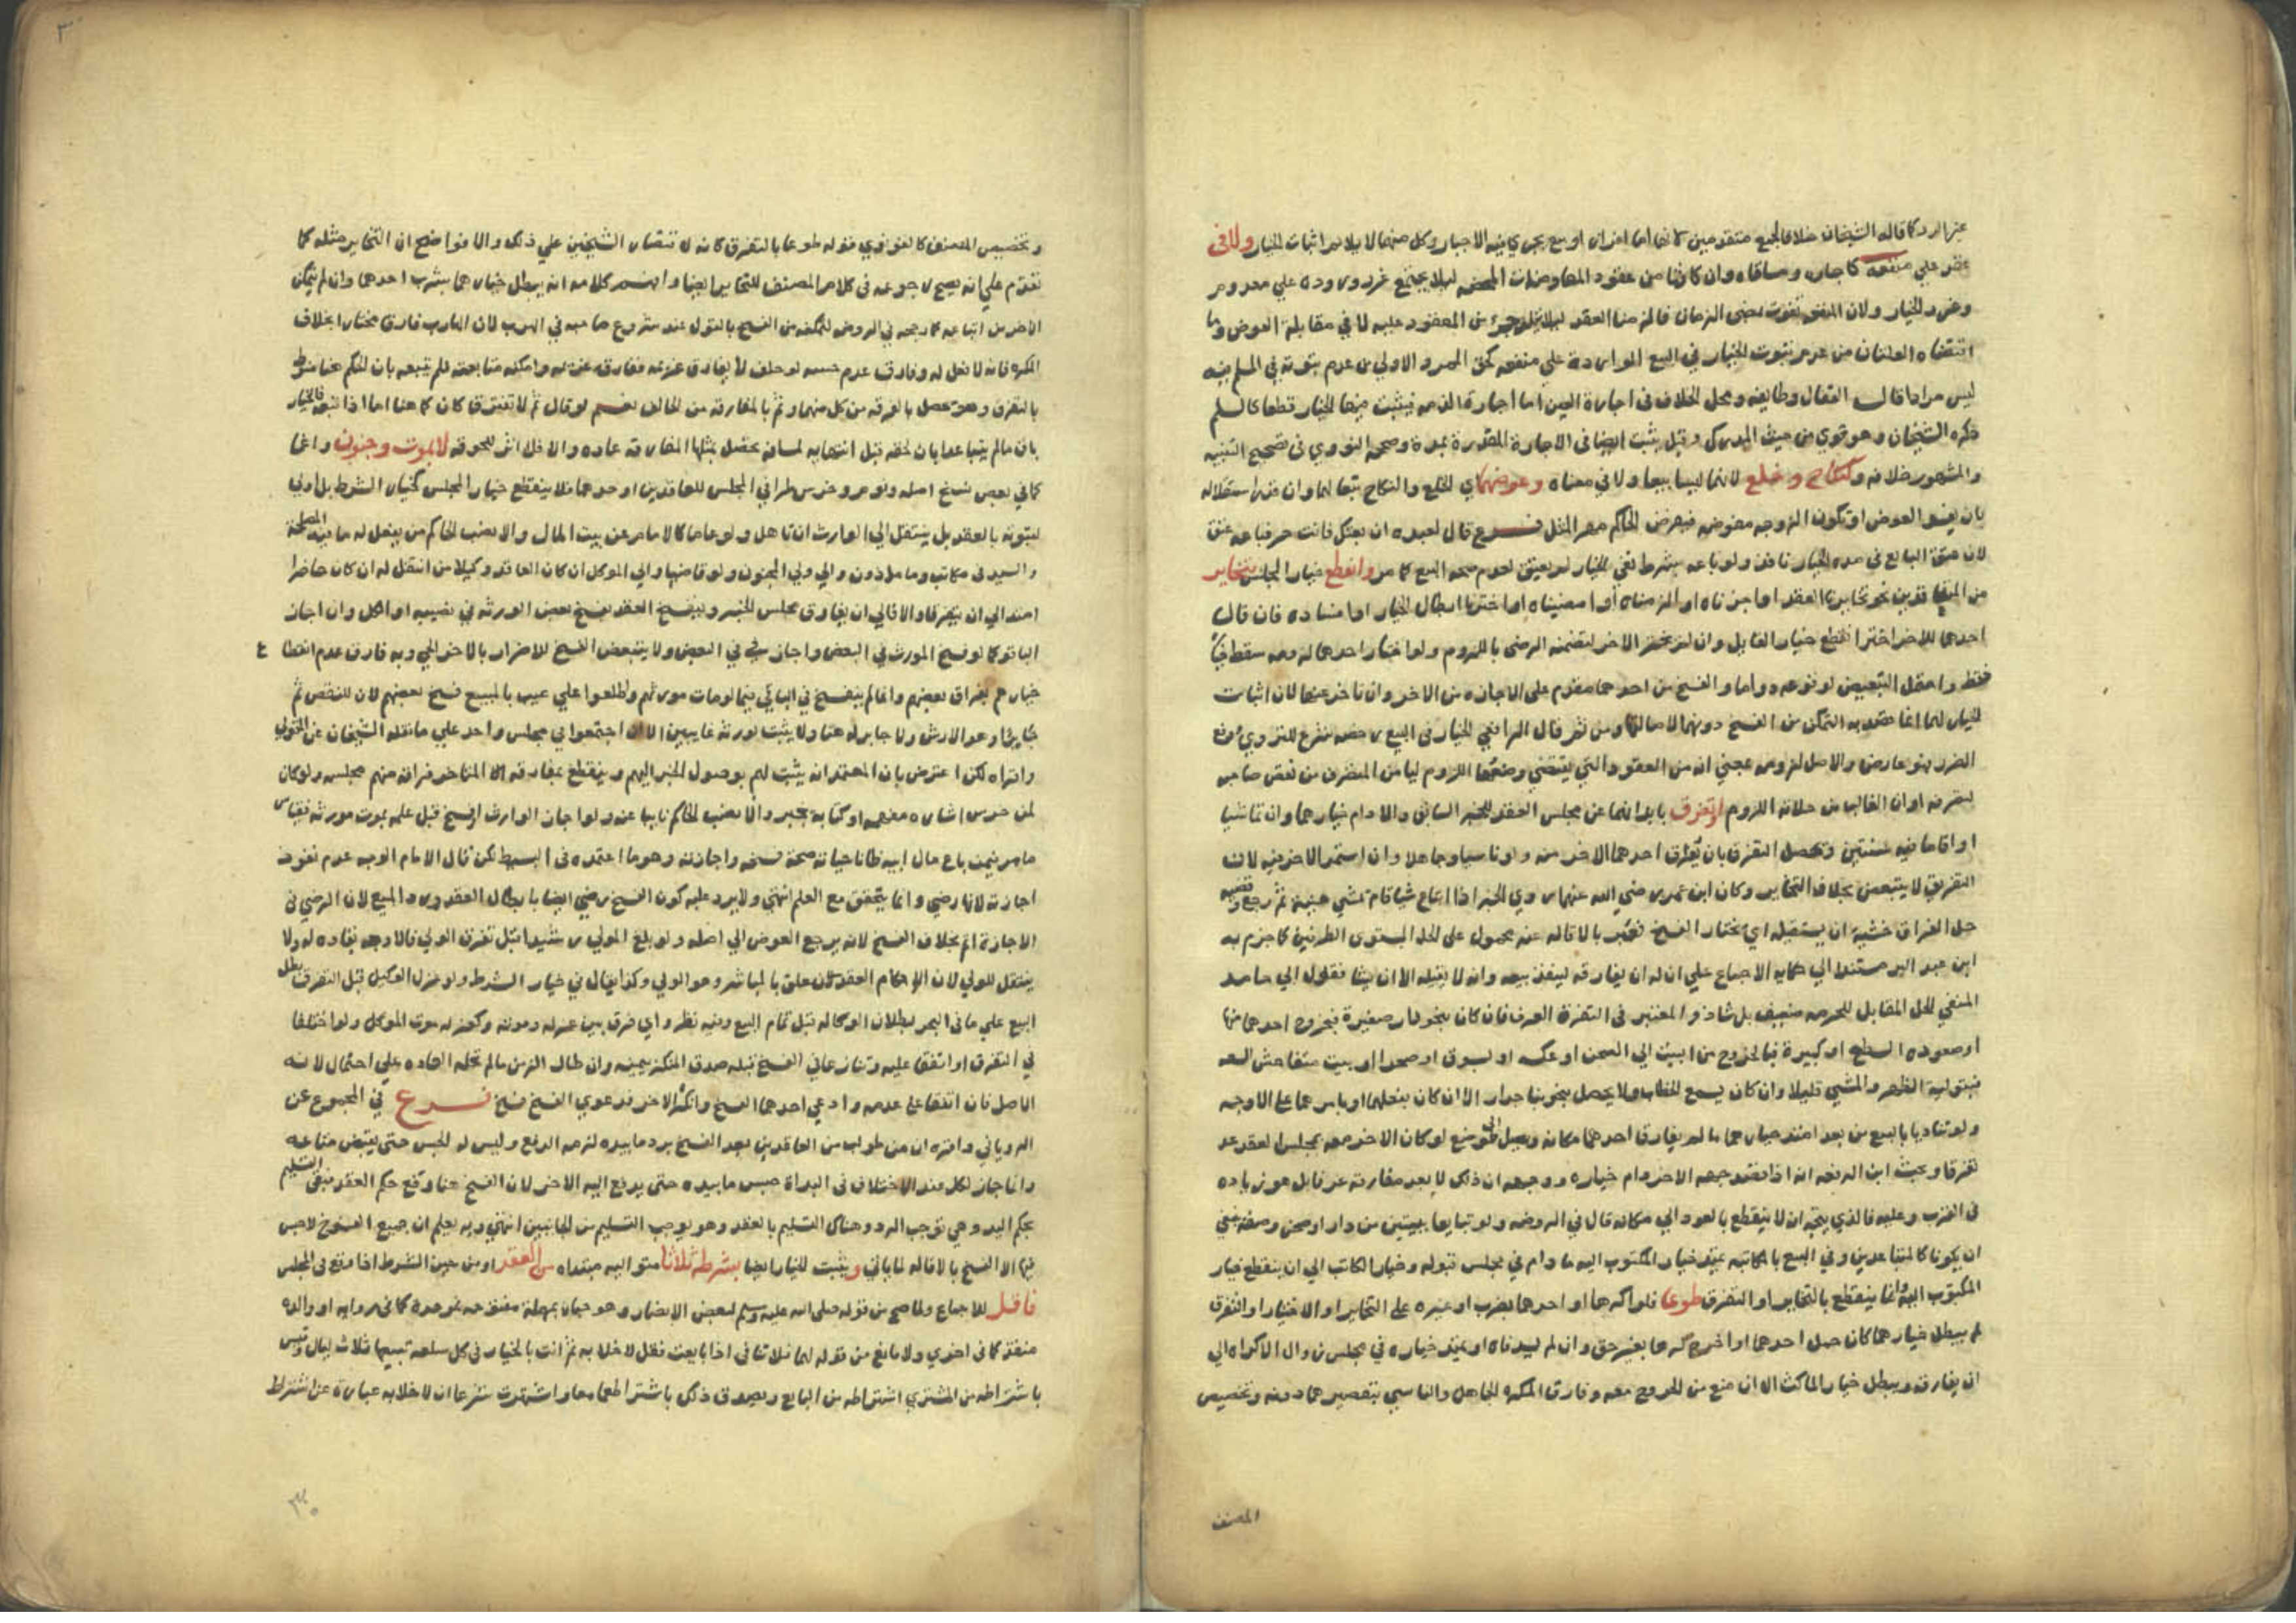 عقد علي منفعة كاجارة ومساقاه وان كانتا من عقود المعاوضات المحضة ليلا يجتمع غرر وروده علي معدوم
ليس مرادا قال القفال وطايفة ومحل الخلاف في اجارة العين اما اجارة الذمة فيثبت فيها الخيار قطعا كالسلم
ذكره الشيخان وهو قوي من حيث المدرك وقيل يثبت ايضا في الاجارة المقدرة بمدة وصححه النووي في تصحيح التنبيه
والمشهور خلافه وكنكاح وخلع لانهما ليسا بيعا ولا في معناه وعوضهما اي الخلع والنكاح تبعا لهما وان
بان يعين العوض او تكون الزوجة مفوضة فيفرض الحاكم مهر المثل فرع قال لعبده ان بعتك فانت حر فباعه عتق
لان عتق البايع في مدة الخيار نافذ ولو باعه بشرط نفي الخيار لم يعتق لعدم صحة البيع كما مر وانقطع خيار المجلس بتخاير
من المتعاقدين نحو تخايرنا العقد او اجزناه او الزمناه او امضيناه او اخترنا ابطال الخيار او افسدناه فان قال
احدهما للاخر اختر انقطع خيار القايل وان لم يختر الاخر لتضمنه الرضي باللزوم ولو اختار احدهما لزومه سقط خياره
فقط واحتمل التبعيض لوقوعه دواما والفسخ من احدهما مقدم على الاجازة من الاخر وان تاخر عنها لان اثبات
الخيار لهما انما قصد به التمكن من الفسخ دونها لاصالتها ومن ثم قال الرافعي الخيار في البيع رخصة شرع للتروي ودفع
الضرر فهو عارض والاصل لزومه بمعني انه من العقود التي يقتضي وضعها اللزوم ليامن المتصرف من نقض صاحبه
لتصرفه او ان الغالب من حالاته اللزوم او تفرق بابدانهما عن مجلس العقد للخبر السابق والا دام خيارهما وان تماشيا
او اقاما فيه سنتين ويحصل التفرق بان يفارق احدهما الاخر منه ولو ناسيا وجاهلا وان استمر الاخر فيه لان
التفريق لا يتبعض بخلاف التخاير وكان ابن عمر رضي الله عنهما روي الخبر اذا ابتاع شيا قام يمشي هنيهة ثم رجع وقضية
حل الفراق خشية ان يستقيله اي يختار الفسخ فعبر بالاقالة عنه محمول على الحل المستوى الطرفين كما جزم به
ابن عبد البر مستندا الي حكاية الاجماع علي ان له ان يفارقه لينفذ بيعه وانه لا يقيله الا ان يشا فقول ابي حامد
المنفي الحل المقابل للحرمه ضعيف بل شاذ والمعتبر في التفرق العرف فان كان بنحو دار صغيرة فبخروج احدهما منها
او صعوده السطح او كبيرة فبالخروج من البيت الي الصحن او عكسه او بسوق او صحرا او بيت متفاحش السعه
فبتولية الظهر والمشي قليلا وان كان يسمع الخطاب ولا يحصل بنحو بنا جدار الا ان كان بفعلهما او بامرهما علي الاوجه
ولو تناديا بالبيع من بعد امتد خيارهما ما لم يفارق احدهما مكانه ويصل الي موضع لو كان الاخر معه بمجلس العقد عد
تفرقا وبحث ابن الرفعة انه اذا قصد جهة الاخر دام خياره ووجهه ان ذلك لا يعد مفارقة عرفا بل هو زيادة
في القرب وعليه فالذي يتجه ان لا ينقطع بالعود الي مكانه قال في الروضه ولو تبايعا ببيتين من دار او صحن وصفه ينبغي
ان يكونا كالمتباعدين وفي البيع بالمكاتبه يمتد خيار المكتوب اليه ما دام في مجلس قبوله وخيار الكاتب الي ان ينقطع خيار
المكتوب اليه وانما ينقطع بالتخاير او التفرق طوعا فلو اكرها او احدهما بضرب او غيره على التخاير او الاختيار او التفرق
لم يبطل خيارهما كان حمل احدهما او اخرج كرها بغير حق وان لم يسد فاه او يمتد خياره في مجلس زوال الاكراه الي
ان يفارقه ويبطل خيار الماكث الا ان منع من الخروج معه وفارق المكره الجاهل والناسي بتقصيرهما دونه وتخصيص
المصنف
وتخصيص المصنف كالغزي قوله طوعا بالتفرق كانه لاقتصار الشيخين علي ذلك والا فواضح ان التخاير مثله كما
تقدم علي انه يصح رجوعه في كلام المصنف للتخاير ايضا وافهم كلامه انه يبطل خيارهما بهرب احدهما وان لم يتمكن
الاخر من اتباعه كما رجحه في الروض لتمكنه من الفسخ بالقول عند شروع صاحبه في الهرب لان الهارب فارق مختارا بخلاف
المكره فانه لا فعل له وفارق عدم حنثه لو حلف لا يفارق غريمه ففارقه غريمه وامكنه متابعته فلم يتبعه بان الحكم هنا منوط
بالتفرق وهو يحصل بالفرقة من كل منهما وثم بالمفارقة من الحالف نعم لو قال ثم لا نفترق كان كما هنا اما اذا تبعه فالخيار
باق ما لم يتباعدا بان لحقه قبل انتهايه لمسافة يحصل بمثلها المفارقة عادة والا فلا اثر للحوقه لا بموت وجنون واغما
كما في بعض نسخ اصله ونوم وخرس طرا في المجلس للعاقدين او احدهما فلا ينقطع خيار المجلس كخيار الشرط بل اولي
لثبوته بالعقد بل ينتقل الي الوارث ان تاهل ولو عاما كالامام عن بيت المال والا نصب الحاكم من يفعل له ما فيه المصلحة
والسيد في مكاتب وماذون والي ولي المجنون ولو قاضيا والي الموكل ان كان العاقد وكيلا من انتقل له ان كان حاضرا
امتد الي ان يتفرقا والا فالي ان يفارق مجلس الخبر وينفسخ العقد بفسخ بعض الورثة في نصيبه او الكل وان اجاز
الباقو كما لو فسخ المورث في البعض واجاز في البعض ولا يتبعض الفسخ للاضرار بالاخر الحي وبه فارق عدم انقطاع
خيارهم بفراق بعضهم وانما لم ينفسخ في الباقي فيما لو مات مورثهم واطلعوا علي عيب بالمبيع ففسخ بعضهم لان للنقص ثم
جابرا وهو الارش ولا جابر له هنا ولا يثبت لورثة غايبين الا ان اجتمعوا في مجلس واحد علي ما نقله الشيخان عن المتولي
واقراه لكن اعترض بان المعتمد انه يثبت لهم بوصول الخبر اليهم وينقطع بمفارقة المتاخر فراقه منهم مجلسه ولو كان
لمن خرس اشارة مفهمه او كتابة تخير والا نصب الحاكم نايبا عنه ولو اجاز الوارث او فسخ قبل علمه بموت مورثه فقياس
ما مر فيمن باع مال ابيه ظانا حياته صحة فسخه واجازته وهو ما اعتمده في البسيط لكن قال الامام الوجه عدم نفوذ
اجازته لانها رضي وانما يتحقق مع العلم انتهي ولا يرد عليه كون الفسخ رضي ايضا بابطال العقد ورد المبيع لان الرضي في
الاجازة اتم بخلاف الفسخ لانه يرجع العوض الي اصله ولو بلغ المولي رشيدا قبل تفرق الولي فالاوجه بقاوه له ولا
ينتقل للولي لان احكام العقد معلق بالمباشر وهو الولي وكذا يقال في خيار الشرط ولو عزل الوكيل قبل التفرق بطل
البيع علي ما في البحر لبطلان الوكاله قبل تمام البيع وفيه نظر واي فرق بين عزله وموته وكعزله موت الموكل ولو اختلفا
في التفرق او اتفقا عليه وتنازعا في الفسخ قبله صدق المنكر بيمينه وان طال الزمن ما لم تحله العاده علي احتمال لانه
الاصل فان اتفقا على عدمه وادعي احدهما الفسخ وانكر الاخر فدعوي الفسخ فسخ فرع في المجموع عن
الروياني واقره ان من طولب من العاقدين بعد الفسخ برد ما بيده لزمه الدفع وليس له الحبس حتى يقبض متاعه
وانما جاز لكل عند الاختلاف في البداة حبس ما بيده حتى يدفع اليه الاخر لان الفسخ هنا رفع حكم العقد فبقي التسليم
بحكم اليد وهي توجب الرد وهناك التسليم بالعقد وهو يوجب التسليم من الجانبين انتهي وبه يعلم ان جميع الفسوخ لا حبس
فيها الا الفسخ بالاقاله لما ياتي ويثبت الخيار ايضا بشرطه ثلاثا متواليه مبتداه من العقد او من حين الشرط اذا وقع في المجلس
فاقل للاجماع ولما صح من قوله صلي الله عليه وسلم لبعض الانصار وهو حبان بمهملة مفتوحة فموحدة كما في روايه او والده
منقذ كما في اخري ولا مانع من قوله لهما ثلاثا في اذا بايعت فقل لا خلابه ثم انت بالخيار في كل سلعه تبيعها ثلاث ليال وقيس
باشتراطه من المشتري اشتراطه من البايع ويصدق ذلك باشتراطهما معا واشتهرت شرعا ان لا خلابه عبارة عن اشتراط